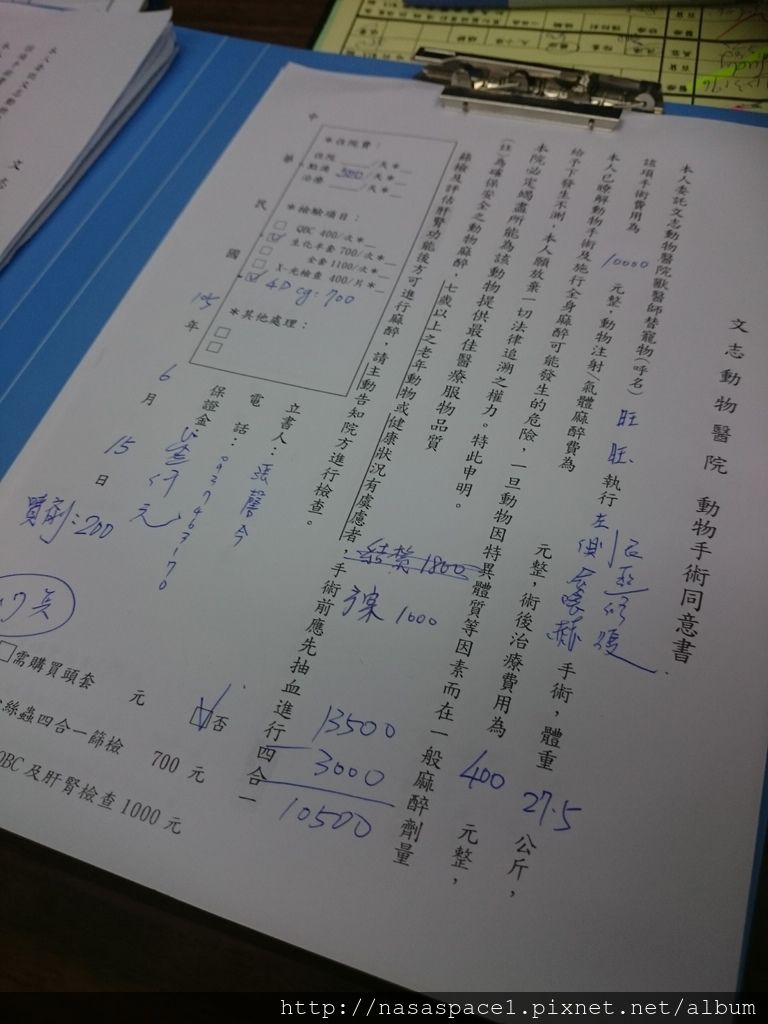 文志動物醫院 動物手術同意書
本人委託文志動物醫院獸醫師替寵物(呼名) 旺旺 執行 左側 手術，體重 27.5 公斤，
該項手術費用為 10000 元整，動物注射/氣體麻醉費為 元整，術後治療費用為 400 元整，
本人已瞭解動物手術及施行全身麻醉可能發生的危險，一旦動物因特異體質等因素而在一般麻醉劑量
給予下發生不測，本人願放棄一切法律追溯之權力。特此申明。
本院必定竭盡所能為該動物提供最佳醫療服物品質
(註)為確保安全之動物麻醉，七歲以上之老年動物或健康狀況有虞慮者，手術前應先抽血進行四合一
篩檢及評估肝腎功能後方可進行麻醉，請主動告知院方進行檢查。
1800
1000
13500
3000
10500
*住院費：
住院 /天*
點滴 300/天*
治療 /天*
*檢驗項目：
QBC 400/次*
生化半套 700/次*
全套 1100/次*
X-光檢查 400/片*
4D cg: 700
*其他處理：
立書人：張
電話：0937463170
保證金：壹仟元
中華民國 105 年 6 月 15 日
噴劑：200
需購買頭套 元 否
絲蟲四合一篩檢 700 元
QBC 及肝腎檢查 1000 元
http://nasaspace1.pixnet.net/album